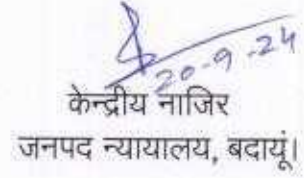 20-9-24
केन्द्रीय नाजिर
जनपद न्यायालय, बदायूं।